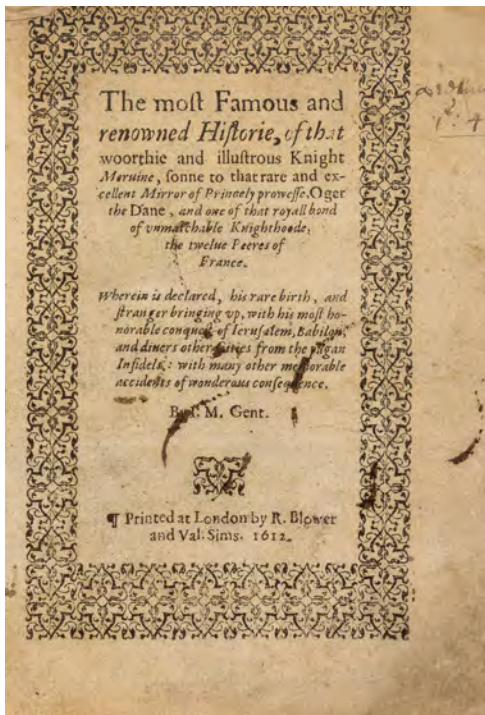 The moſt Famous and
renowned Hiſtorie, of that
woorthie and illuſtrous Knight
Meruine, ſonne to that rare and ex-
cellent Mirror of Princely proweſſe, Oger
the Dane, and one of that royall bond
of vnmatchable Knighthoode,
the twelue Peeres of
France.
Wherein is declared, his rare birth, and
ſtranger bringing vp, with his moſt ho-
norable conqueſt of Ieruſalem, Babilon,
and diuers other Citties from the pagan
Infidels: with many other memorable
accidents of wonderous conſequence.
By I. M. Gent.
¶ Printed at London by R. Blower
and Val. Sims. 1612.